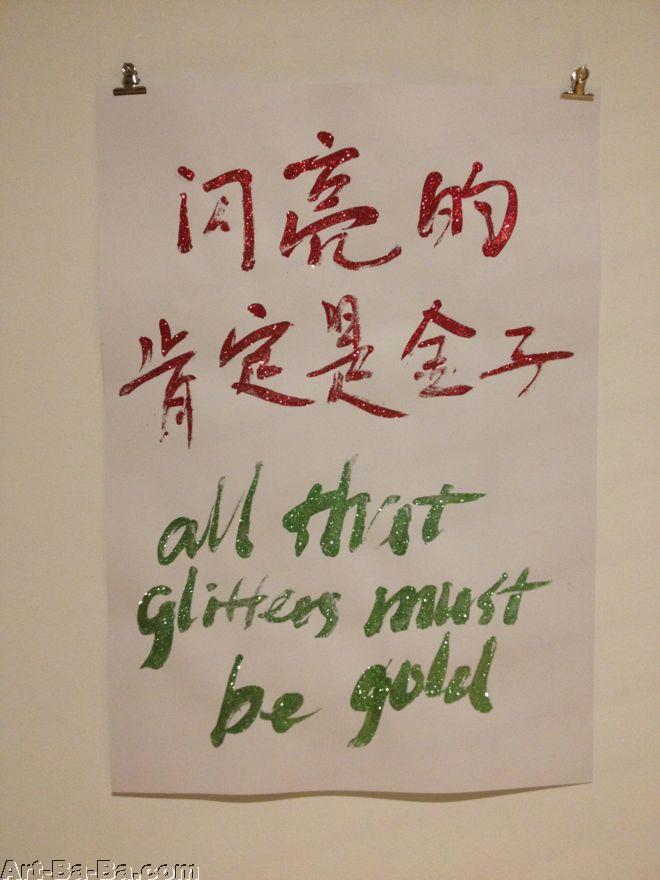 闪亮的
肯定是金子
all that
glitters must
be gold
Art-Ba-Ba.com